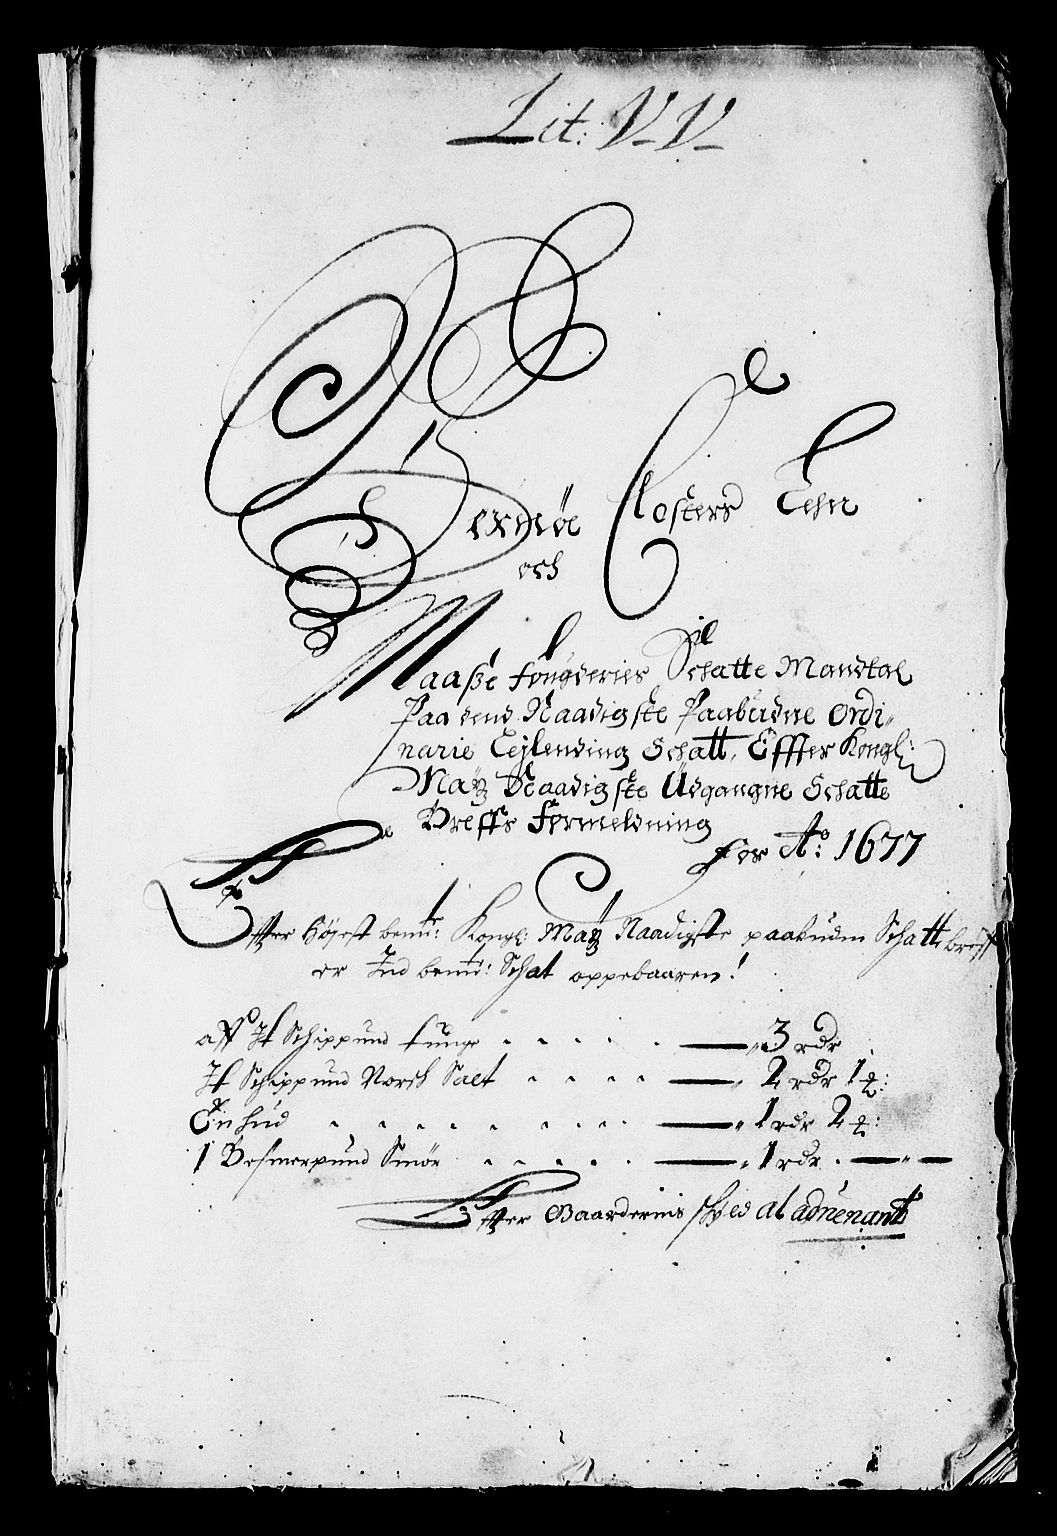 Lit: VV
Bexnöe Closters Lehn
och
Maaße fougderies Schatte Mandtal
Paa dend Naadigste Paabudne ordi„
narie Lejlending Schatt, Effter Kongl:
Maytz Naadigste Udgangne Schatte
Breffs formeldning
for Ao: 1677
Effter höjest bemte: Kongl: Maytz Naadigste paabuden Schatt breff
er Ind bemte: Schat oppebaaren!
aff It Schippund tunge . . . . . — „ 3 rdr
It Schippund Norsk Salt . . . . — „ 2 rdr 1 ꝑ:
En hud . . . . . . . . — „ 1 rdr 2 ꝑ:
1 Besmerpund Smör . . . . . — „ 1 rdr . — „ —
Effter Gaardernis schyld al aduenant